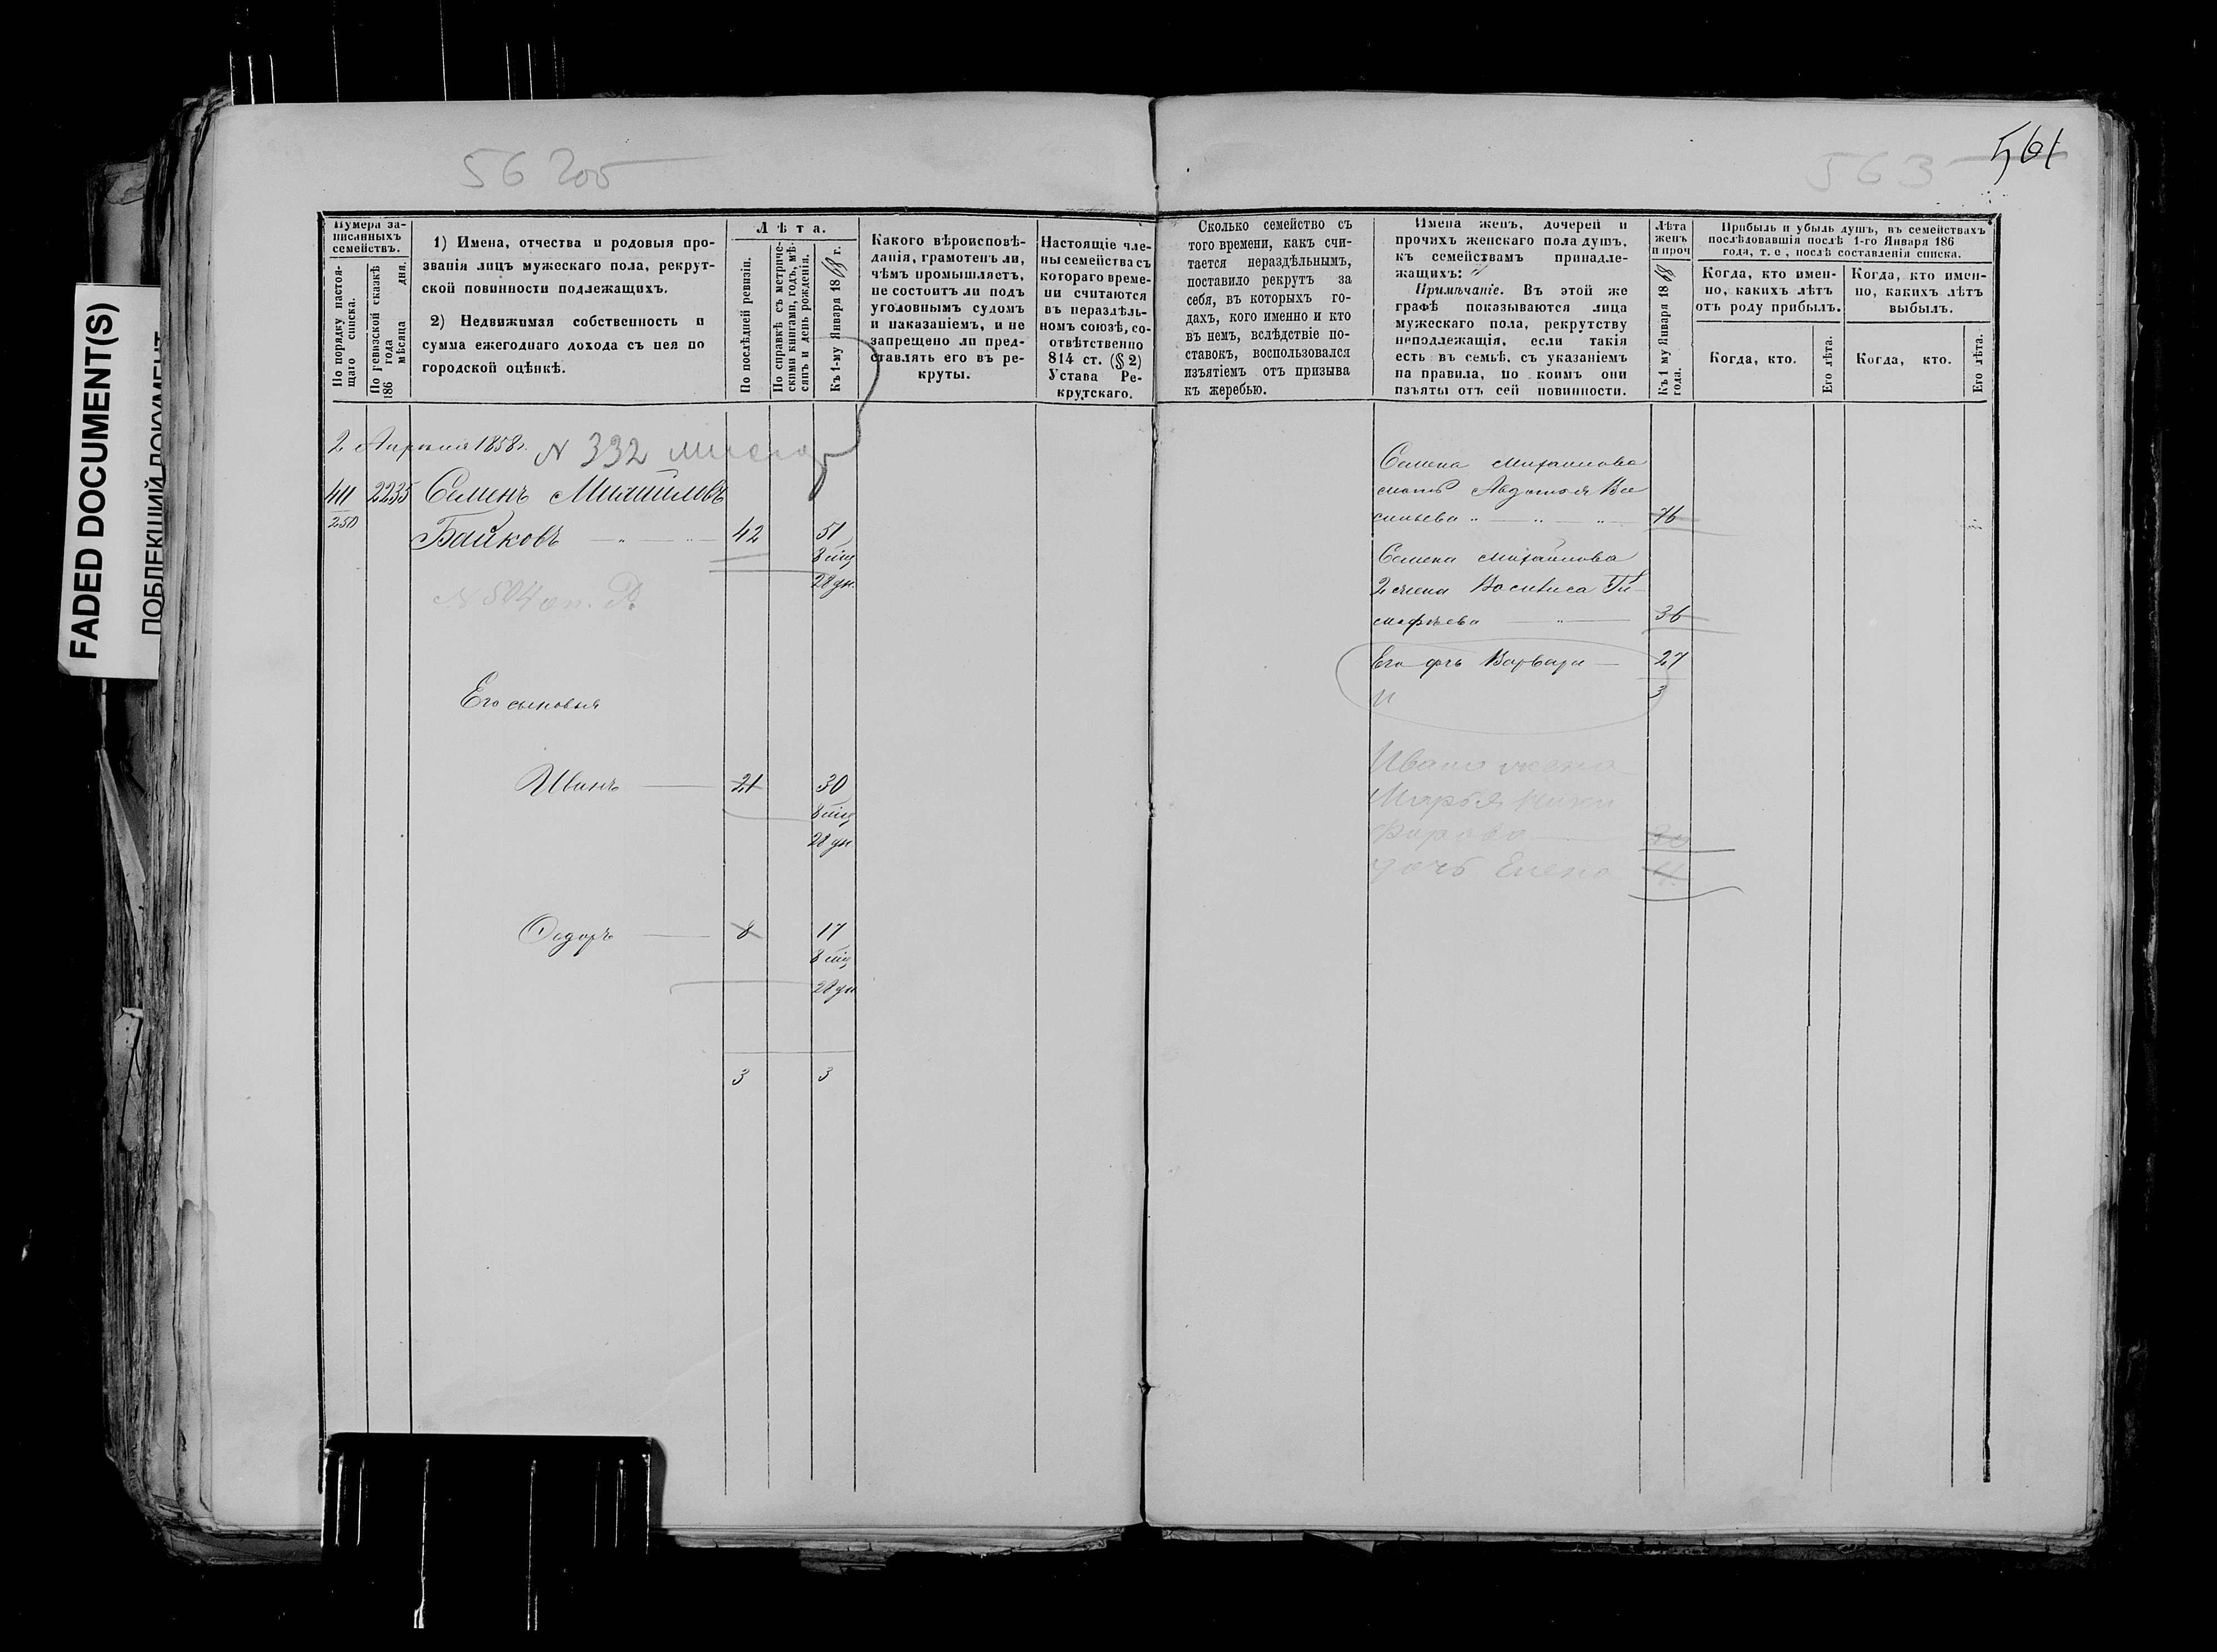 FADED DOCUMENT(S)
ПОБЛЕКШИЙ ДОКУМЕНТ
56
563
561
Нумера за-
писанныхъ
семействъ.
По порядку настоя-
щаго списка.
По ревизской сказкѣ
186 года
мѣсяца дня.
1) Имена, отчества и родовыя про-
званія лицъ мужескаго пола, рекрут-
ской повинности подлежащихъ.
2) Недвижимая собственность и
сумма ежегоднаго дохода съ нея по
городской оцѣнкѣ.
Лѣта.
По послѣдней ревизіи.
По справкѣ съ метриче-
скими книгами, годъ, мѣ-
сяцъ и день рожденія.
Къ 1-му Января 1868 г.
Какого вѣроисповѣ-
данія, грамотенъ ли,
чѣмъ промышляетъ,
не состоитъ ли подъ
уголовнымъ судомъ
и наказаніемъ, и не
запрещено ли пред-
ставлять его въ ре-
круты.
Настоящіе чле-
ны семейства съ
котораго време-
ни считаются
въ нераздѣль-
номъ союзѣ, со-
отвѣтственно
814 ст. (§ 2)
Устава Ре-
крутскаго.
Сколько семейство съ
того времени, какъ счи-
тается нераздѣльнымъ,
поставило рекрутъ за
себя, въ которыхъ го-
дахъ, кого именно и кто
въ немъ, вслѣдствіе по-
ставокъ, воспользовался
изъятіемъ отъ призыва
къ жеребью.
Имена женъ, дочерей и
прочихъ женскаго пола душъ,
къ семействамъ принадле-
жащихъ:
Примѣчаніе. Въ этой же
графѣ показываются лица
мужескаго пола, рекрутству
неподлежащія, если такія
есть въ семьѣ, съ указаніемъ
на правила, по коимъ они
изъяты отъ сей повинности.
Лѣта
женъ
и проч
Къ 1 му Января 1868
года.
Прибыль и убыль душъ, въ семействахъ
послѣдовавшія послѣ 1-го Января 186
года, т. е., послѣ составленія списка.
Когда, кто имен-
но, какихъ лѣтъ
отъ роду прибылъ.
Когда, кто имен-
но, какихъ лѣтъ
выбылъ.
Когда, кто.
Его лѣта.
Когда, кто.
Его лѣта.
2 Апрѣля 1858 г. N 332
411 2235 Семенъ Михайловъ
250 Байковъ 42 51
8 мѣц
28 дн.
N 504
Его сыновья
Иванъ 21 30
8 мѣц
28 дн
Ѳедоръ 8 17
8 мѣц
28 дн
3 3
Семена Михайлова
мать Авдотья Ва
сильева 76
Семена Михайлова
2 жена Василиса Ти
мофѣева 36
Его дочь Варвара 27
и 3
Ивана жена
Марья Ники
форова
дочь Елена